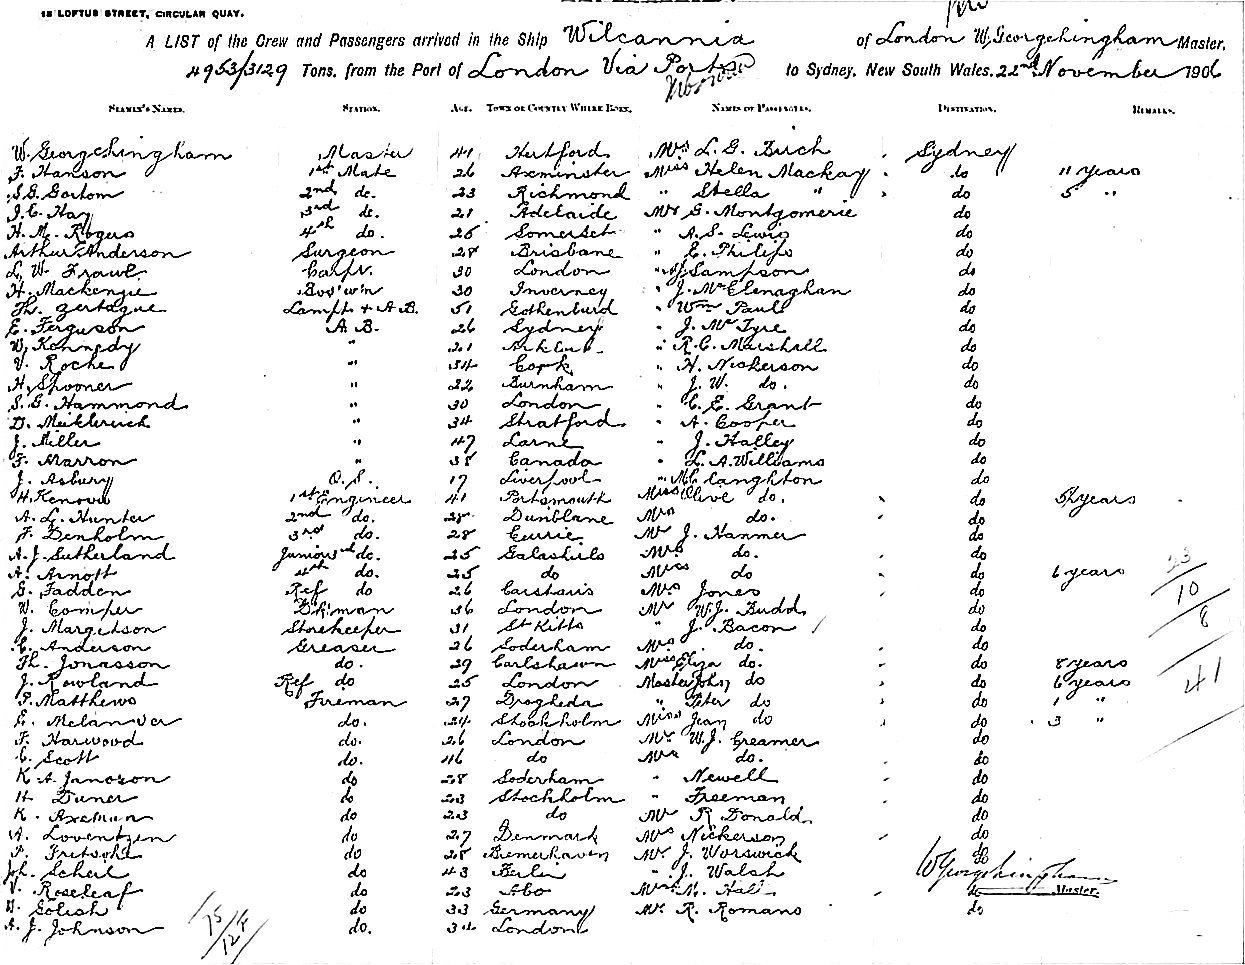 15 LOFTUS STREET, CIRCULAR QUAY.
A LIST of the Crew and Passengers arrived in the Ship Wilcannia of London W. Georgchingham Master,
4953/3129 Tons, from the Port of London Via Ports to Sydney, New South Wales, 22nd November 1906
SEAMEN'S NAMES. STATION. AGE. TOWN OR COUNTRY WHERE BORN. NAMES OF PASSENGERS. DESTINATION. REMARKS.
W. Georgchingham Master 41 Hertford Mrs L. G. Birch Sydney
F. Hanson 1st Mate 26 Axminster Miss Helen Mackay do 11 years
2nd do. 23 Richmond " Stella " do 5 "
J. C. Hay 3rd do. 21 Adelaide Mr G. Montgomerie do
H. M. Rogers 4th do. 25 Somerset " A. S. Lewis do
Arthur Anderson Surgeon 28 Brisbane " E. Philips do
L. W. Frawl Carpr. 30 London " J. Sampson do
H. Mackenzie Bos'win 30 Inverney " J. McClenaghan do
Th. Lampt + A.B. 51 Gothenburg " Wm Paul do
E. Ferguson A.B. 26 Sydney " J. McTyre do
W. Kennedy " 21 " R. C. Marshall do
V. Roche " 34 Cork " H. Nickerson do
H. Spooner " 22 Burnham " J. W. do. do
S. G. Hammond " 30 London " C. E. Grant do
D. " 34 Stratford " A. Cooper do
J. Miller " 47 Larne " J. Halley do
F. Marron " 38 Canada " L. A. Williams do
J. Asbury O.S. 17 Liverpool " do
H. Kenova 1st Engineer 41 Portsmouth Miss Olive do. do years
A. L. Hunter 2nd do. 28 Dunblane Mrs do. do
F. Denholm 3rd do. 28 Currie Mr J. Hanmer do
A. J. Sutherland Junior do. 25 Galashiels Mrs do. do
A. Arnott 4th do. 25 do Miss do do 6 years
S. Fadden Ref do 26 Mrs Jones do
W. Comper D'k'man 36 London Mr W. J. Budd do
J. Margetson Storekeeper 31 St Kitts " J. Bacon do
C. Anderson Greaser 26 Soderham Mrs do. do
Th. Jonasson do. 29 Carlshawn Miss Eliza do. do 8 years
J. Rowland Ref do 25 London Master John do do 6 years
P. Matthews Fireman 27 Drogheda " Peter do do 1 "
E. Melander do. 24 Stockholm Miss Jean do do 3 "
F. Harwood do. 26 London Mr W. J. Creamer do
C. Scott do. 46 do Mrs do. do
K. A. Janoson do 28 Soderham " Newell do
H. Duner do 23 Stockholm " Freeman do
K. Axeman do 23 do Mr R Donald do
A. Loventzen do 27 Denmark Mrs Nickerson do
P. Fritsohl do 28 Bremerhaven Mr J. Worswick do
Joh. Scheil do 43 Berlin " J. Walsh do
V. Roseleaf do 23 Abo Mrs M. Hall do
Golish do 33 Germany Mr R. Romans do
A. J. Johnson do. 34 London
W Georgchingham
Master.
23
10
8
41
75
124